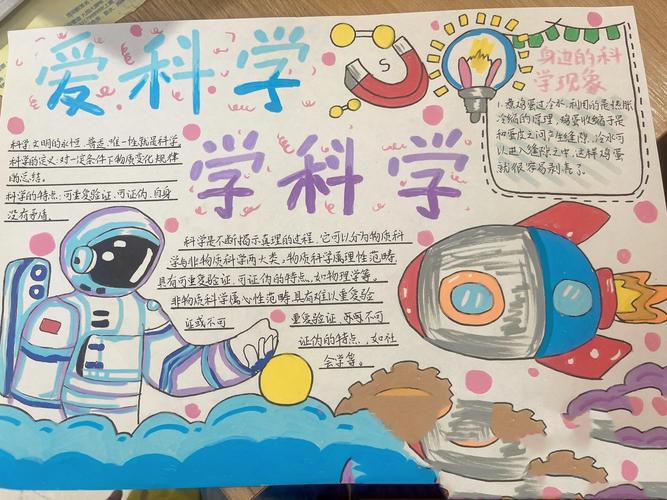 爱科学
学科学
S
身边的科
学现象
1.煮鸡蛋过冷水,利用的是热胀
冷缩的原理,鸡蛋收缩于是
和蛋皮之间产生缝隙,冷水可
以进入缝隙之中,这样鸡蛋
就很容易剥壳了。
科学文明的永恒、普适、惟一性就是科学。
科学的定义:对一定条件下物质变化规律
的总结。
科学的特点:可重复验证、可证伪、自身
没有矛盾
科学是不断揭示真理的过程,它可以分为物质科
学与非物质科学两大类,物质科学属理性范畴,
具有可重复验证、可证伪的特点,如物理学等。
非物质科学属心性范畴,具有难以重复验
证或不可 重复验证、亦不可
证伪的特点、如社
会学等。